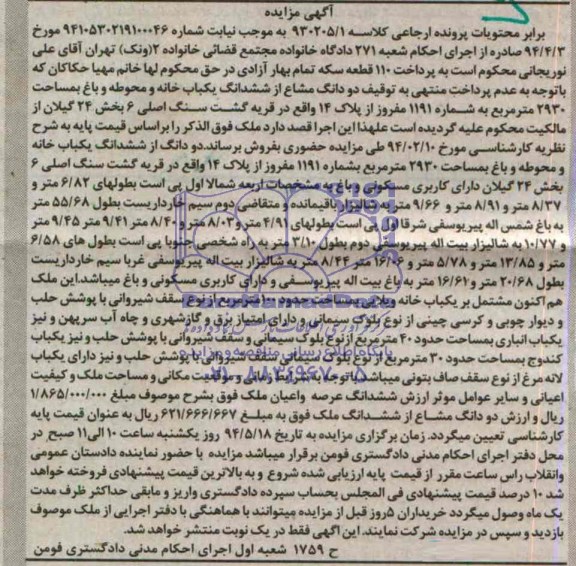 آگهی مزایده
برابر محتویات پرونده ارجاعی کلاسه ۹۳۰۲۰۵/۱ به موجب نیابت شماره ۹۴۱۰۵۳۰۲۱۹۱۰۰۰۴۶ مورخ
۹۴/۴/۳ صادره از اجرای احکام شعبه ۲۷۱ دادگاه خانواده مجتمع قضائی خانواده ۲(ونک) تهران آقای علی
نوریجانی محکوم است به پرداخت ۱۱۰ قطعه سکه تمام بهار آزادی در حق محکوم لها خانم مهیا حکاکان که
باتوجه به عدم پرداخت منتهی به توقیف دو دانگ مشاع از ششدانگ یکباب خانه و محوطه و باغ بمساحت
۲۹۳۰ مترمربع به شماره ۱۱۹۱ مفروز از پلاک ۱۴ واقع در قریه گشت سنگ اصلی ۶ بخش ۲۴ گیلان از
مالکیت محکوم علیه گردیده است علهذا این اجرا قصد دارد ملک فوق الذکر را براساس قیمت پایه به شرح
نظریه کارشناسی مورخ ۹۴/۰۲/۱۰ طی مزایده حضوری بفروش برساند.دو دانگ از ششدانگ یکباب خانه
و محوطه و باغ بمساحت ۲۹۳۰ مترمربع بشماره ۱۱۹۱ مفروز از پلاک ۱۴ واقع در قریه گشت سنگ اصلی ۶
بخش ۲۴ گیلان دارای کاربری مسکونی و باغ به مشخصات اربعه شمالا اول پی است بطولهای ۶/۸۲ متر و
۸/۳۷ متر و ۸/۹۱ متر و ۹/۶۶ متر به شالیزار باقیمانده و متقاضی دوم سیم خارداریست بطول ۵۵/۶۸ متر
به باغ شمس اله پیریوسفی شرقا اول پی است بطولهای ۴/۹۱ متر و ۸/۰۳ متر و ۸/۴۰ متر ۹/۴۱ متر ۹/۴۵ متر
و ۱۰/۷۷ به شالیزار بیت اله پیریوسفی دوم بطول ۳/۱۰ متر به راه شخصی جنوبا پی است بطول های ۶/۵۸
متر و ۱۳/۸۵ متر و ۵/۷۸ متر و ۱۶/۰۶ متر ۸/۴۴ متر به شالیزار بیت اله پیریوسفی غربا سیم خارداریست
بطول ۲۰/۶۸ متر و ۱۶/۶۱ متر به باغ بیت اله پیریوسفی و دارای کاربری مسکونی و باغ میباشد.این ملک
هم اکنون مشتمل بر یکباب خانه ویلایی بمساحت حدود ۱۰۰ مترمربع از نوع سقف شیروانی با پوشش حلب
و دیوار چوبی و کرسی چینی از نوع بلوک سیمانی و دارای امتیاز برق و گازشهری و چاه آب سرپهن و نیز
یکباب انباری بمساحت حدود ۴۰ مترمربع از نوع بلوک سیمانی و سقف شیروانی با پوشش حلب و نیز یکباب
کندوج بمساحت حدود ۳۰ مترمربع از نوع بلوک سیمانی سقف شیروانی با پوشش حلب و نیز دارای یکباب
لانه مرغ از نوع سقف صاف بتونی میباشد.با توجه به شرایط زمانی و موقعیت مکانی و مساحت ملک و کیفیت
اعیانی و سایر عوامل موثر ارزش ششدانگ عرصه واعیان ملک فوق بشرح موصوف مبلغ ۱/۸۶۵/۰۰۰/۰۰۰
ریال و ارزش دو دانگ مشاع از ششدانگ ملک فوق به مبلغ ۶۲۱/۶۶۶/۶۶۷ ریال به عنوان قیمت پایه
کارشناسی تعیین میگردد. زمان برگزاری مزایده به تاریخ ۹۴/۵/۱۸ روز یکشنبه ساعت ۱۰ الی۱۱ صبح در
محل دفتر اجرای احکام مدنی دادگستری فومن برقرار میباشد مزایده با حضور نماینده دادستان عمومی
وانقلاب راس ساعت مقرر از قیمت پایه ارزیابی شده شروع و به بالاترین قیمت پیشنهادی فروخته خواهد
شد ۱۰ درصد قیمت پیشنهادی فی المجلس بحساب سپرده دادگستری واریز و مابقی حداکثر ظرف مدت
یک ماه وصول میگردد خریداران ۵روز قبل از مزایده میتوانند با هماهنگی با دفتر اجرایی از ملک موصوف
بازدید و سپس در مزایده شرکت نمایند.این اگهی فقط در یک نوبت منتشر خواهد شد.
ح ۱۷۵۹ شعبه اول اجرای احکام مدنی دادگستری فومن